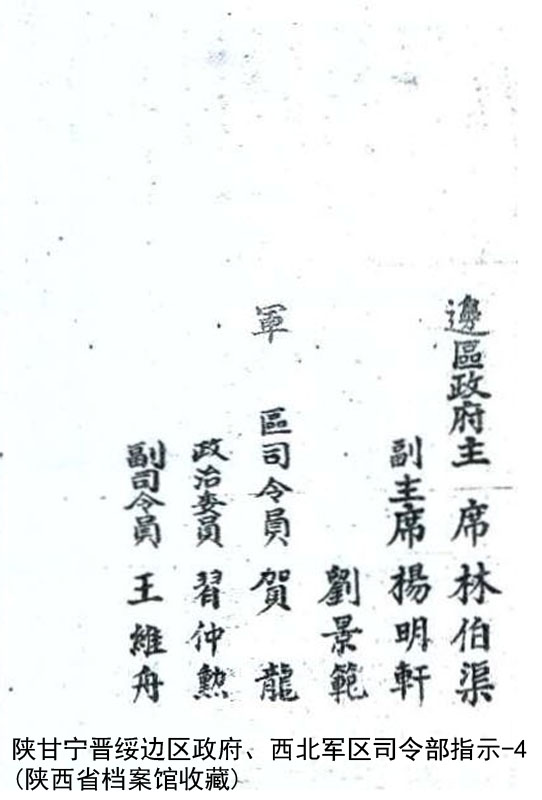 邊區政府主席林伯渠
副主席楊明軒
劉景範
軍區司令員賀龍
政治委員習仲勲
副司令員王維舟
陕甘宁晋绥边区政府、西北军区司令部指示-4
(陕西省档案馆收藏)